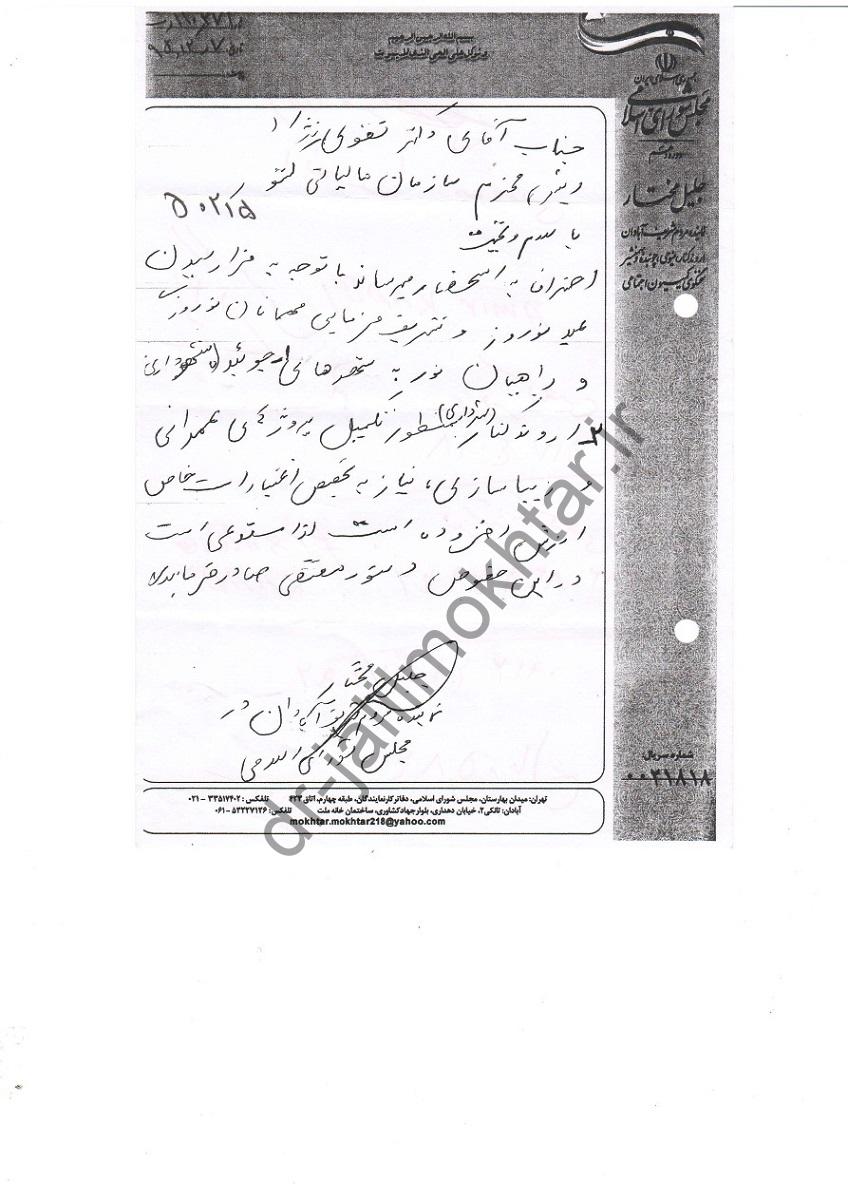 بسم الله الرحمن الرحیم
۱۱۰/۲۷۱/
۹۸,۱۲,۰۷
جمهوری اسلامی ایران
مجلس شورای اسلامی
جلیل مختار
نماینده مردم شریف آبادان
سخنگوی کمیسیون اجتماعی
جناب آقای دکتر تقوی نژاد
رییس محترم سازمان مالیاتی کشور
با سلام و تحیت
احتراما به استحضار میرساند با توجه به فرا رسیدن
عید نوروز و تشریف فرمایی مهمانان نوروزی
و راهیان نور به شهرهای چوئبده (شهرداری)
اروندکنار (شهرداری) بمنظور تکمیل پروژه های عمرانی
و زیباسازی، نیاز به تخصیص اعتبارات خاص
ارزش افزوده است لذا مستدعی است
در این خصوص دستور مقتضی صادر فرمایید
جلیل مختار
نماینده مردم شریف آبادان در
مجلس شورای اسلامی
شماره سریال:
۰۰۲۱۸۱۸
تهران: میدان بهارستان، مجلس شورای اسلامی، دفاتر کار نمایندگان، طبقه چهارم، اتاق ۴۲۳ تلفکس: ۳۳۵۱۷۴۰۲ - ۰۲۱
آبادان: تانکی۲، خیابان دهداری، بلوار جهاد کشاورزی، ساختمان خانه ملت تلفکس: ۵۳۲۲۷۱۲۶ - ۰۶۱
mokhtar.mokhtar218@yahoo.com
dr-jalilmokhtar.ir